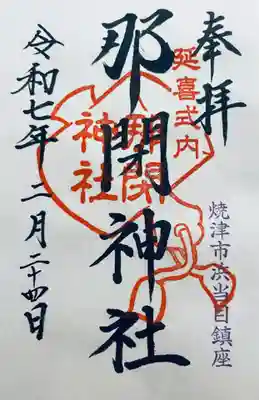 奉拝
延喜式内
焼津市浜当目鎮座
那閇神社
那閇
神社
令和七年 二月二十四日